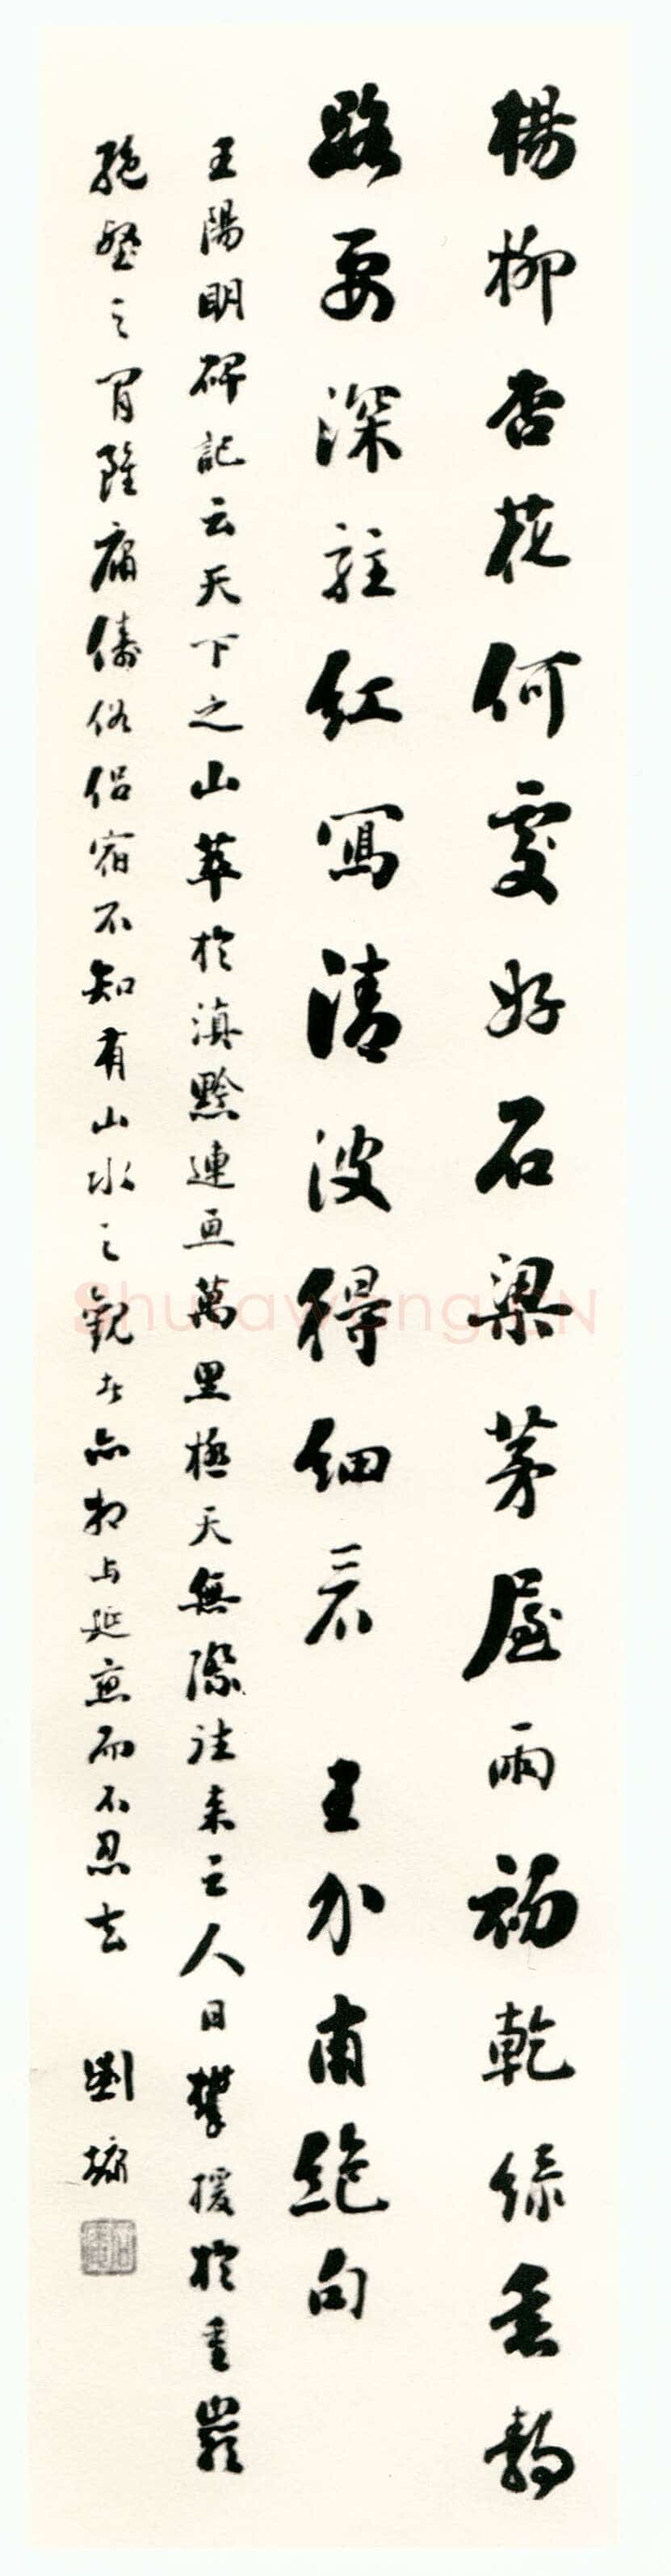 楊柳杏花何處好石梁茅屋雨初乾綠垂靜
路要深駐紅寫清波得細看 王介甫絕句
王陽明碑記云天下之山萃於滇黔連亘萬里極天無際往来之人日攀援於重巖
絕壑之間雖庸儔俗侶宿不知有山水之觀者亦相与延戀而不忍去 劉墉
Shufawang.CN